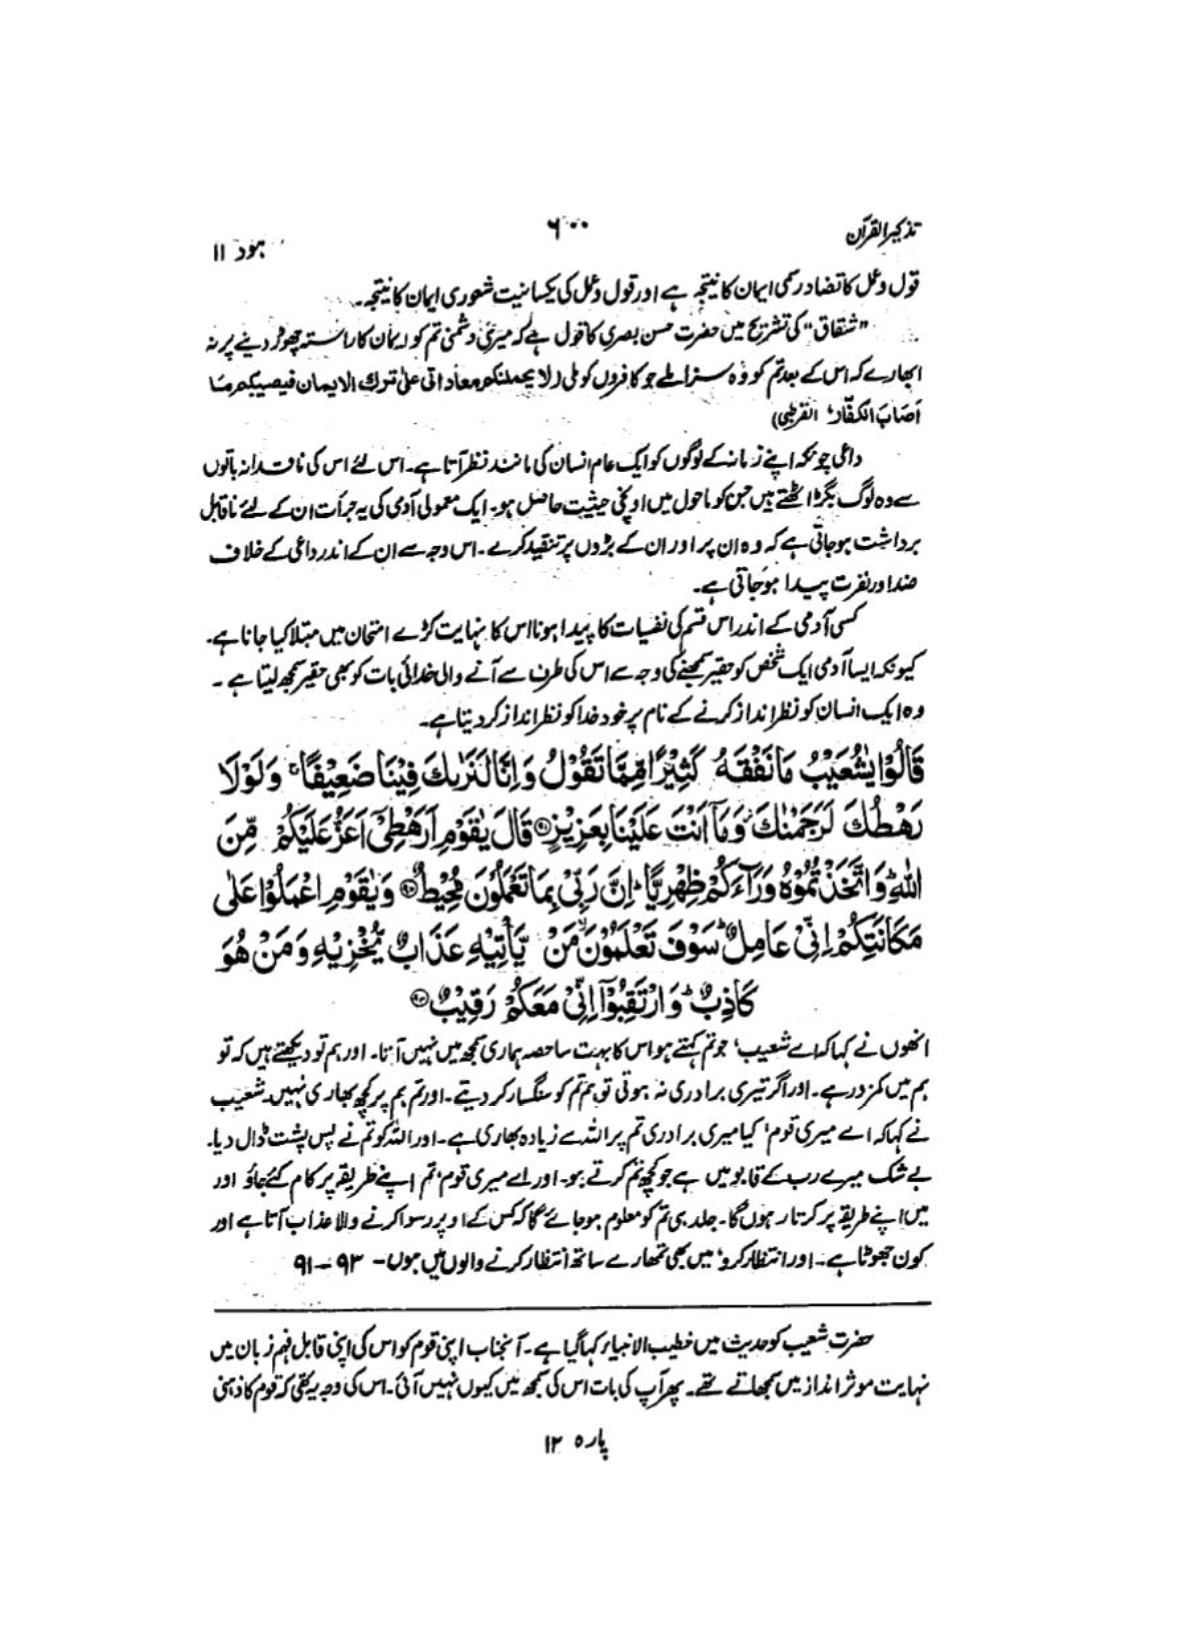 تذکیر القرآن
۶۰۰
ہود ۱۱
قول وعمل کا تضاد رسمی ایمان کا نتیجہ ہے اور قول وعمل کی یکسانیت شعوری ایمان کا نتیجہ۔
"شقاق" کی تشریح میں حضرت حسن بصری کا قول ہے کہ میری دشمنی تم کو ایمان کا راستہ چھوڑ دینے پر نہ
ابھارے کہ اس کے بعد تم کو وہ سزا ملے جو کافروں کو ملی (لا یحملنکم معاداتی علیٰ ترک الایمان فیصیبکم مَا
اَصَابَ الکفّار، القرطبی)
داعی چونکہ اپنے زمانہ کے لوگوں کو ایک عام انسان کی مانند نظر آتا ہے۔ اس لئے اس کی ناقدانہ باتوں
سے وہ لوگ بگڑ اٹھتے ہیں جن کو ماحول میں اونچی حیثیت حاصل ہو۔ ایک معمولی آدمی کی یہ جرأت ان کے لئے ناقابل
برداشت ہوجاتی ہے کہ وہ ان پر اور ان کے بڑوں پر تنقید کرے۔ اس وجہ سے ان کے اندر داعی کے خلاف
ضد اور نفرت پیدا ہوجاتی ہے۔
کسی آدمی کے اندر اس قسم کی نفسیات کا پیدا ہونا اس کا نہایت کڑے امتحان میں مبتلا کیا جانا ہے۔
کیونکہ ایسا آدمی ایک شخص کو حقیر سمجھنے کی وجہ سے اس کی طرف سے آنے والی خدائی بات کو بھی حقیر سمجھ لیتا ہے۔
وہ ایک انسان کو نظرانداز کرنے کے نام پر خود خدا کو نظرانداز کر دیتا ہے۔
قَالُوْا یٰشُعَیْبُ مَا نَفْقَهُ كَثِیْرًا مِّمَّا تَقُوْلُ وَاِنَّا لَنَرٰىكَ فِیْنَا ضَعِیْفًا ۚ وَلَوْلَا
رَهْطُكَ لَرَجَمْنٰكَ ؗ وَمَاۤ اَنْتَ عَلَیْنَا بِعَزِیْزٍ ۝۹۱ قَالَ یٰقَوْمِ اَرَهْطِیْۤ اَعَزُّ عَلَیْكُمْ مِّنَ
اللّٰهِ ؕ وَاتَّخَذْتُمُوْهُ وَرَآءَكُمْ ظِهْرِیًّا ؕ اِنَّ رَبِّیْ بِمَا تَعْمَلُوْنَ مُحِیْطٌ ۝۹۲ وَیٰقَوْمِ اعْمَلُوْا عَلٰی
مَكَانَتِكُمْ اِنِّیْ عَامِلٌ ؕ سَوْفَ تَعْلَمُوْنَ ۙ مَنْ یَّاْتِیْهِ عَذَابٌ یُّخْزِیْهِ وَمَنْ هُوَ
كَاذِبٌ ؕ وَارْتَقِبُوْۤا اِنِّیْ مَعَكُمْ رَقِیْبٌ ۝۹۳
انھوں نے کہا کہ اے شعیب، جو تم کہتے ہو اس کا بہت سا حصہ ہماری سمجھ میں نہیں آتا۔ اور ہم تو دیکھتے ہیں کہ تو
ہم میں کمزور ہے۔ اور اگر تیری برادری نہ ہوتی تو ہم تم کو سنگسار کر دیتے۔ اور تم ہم پر کچھ بھاری نہیں۔ شعیب
نے کہا کہ اے میری قوم، کیا میری برادری تم پر اللہ سے زیادہ بھاری ہے۔ اور اللہ کو تم نے پس پشت ڈال دیا۔
بے شک میرے رب کے قابو میں ہے جو کچھ تم کرتے ہو۔ اور اے میری قوم، تم اپنے طریقہ پر کام کئے جاؤ اور
میں اپنے طریقہ پر کرتا رہوں گا۔ جلد ہی تم کو معلوم ہوجائے گا کہ کس کے اوپر رسوا کرنے والا عذاب آتا ہے اور
کون جھوٹا ہے۔ اور انتظار کرو، میں بھی تمھارے ساتھ انتظار کرنے والوں میں ہوں۔ ۹۳ — ۹۱
حضرت شعیب کو حدیث میں خطیب الانبیاء کہا گیا ہے۔ آنجناب اپنی قوم کو اس کی اپنی قابل فہم زبان میں
نہایت موثر انداز میں سمجھاتے تھے۔ پھر آپ کی بات اس کی سمجھ میں کیوں نہیں آئی۔ اس کی وجہ یہ تھی کہ قوم کا ذہنی
پارہ ۱۲